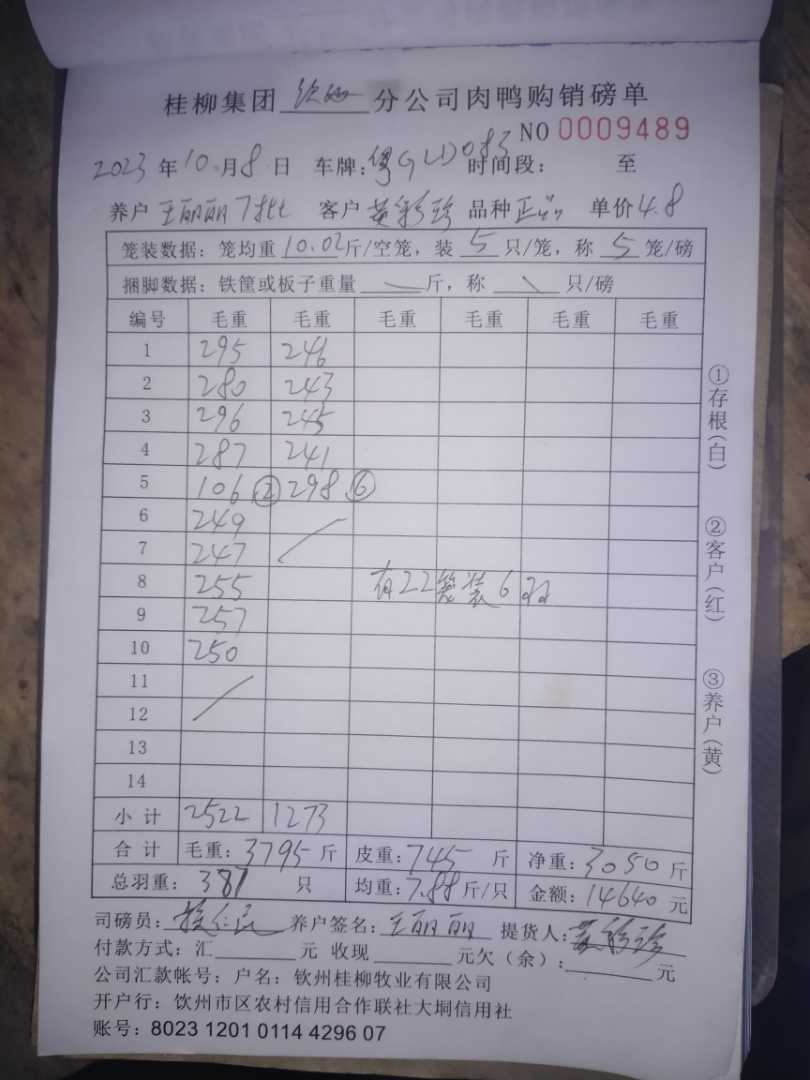 桂柳集团 钦州 分公司肉鸭购销磅单
NO 0009489
2023 年 10 月 8 日 车牌: 粤GLD083 时间段: 至
养户 王丽丽7批 客户 黄彩珍 品种 正品 单价 4.8
笼装数据: 笼均重 10.02 斤/空笼, 装 5 只/笼, 称 5 笼/磅
捆脚数据: 铁筐或板子重量 \ 斤, 称 \ 只/磅
编号 毛重 毛重 毛重 毛重 毛重 毛重
1 295 246
2 280 243
3 296 245
4 287 241
5 106 ② 298 ⑥
6 249
7 247 /
8 255 有22笼装6只
9 257
10 250
11 /
12
13
14
小计 2522 1273
合计 毛重: 3795 斤 皮重: 745 斤 净重: 3050 斤
总羽重: 387 只 均重: 7.88 斤/只 金额: 14640 元
司磅员: 养户签名: 王丽丽 提货人: 黄彩珍
付款方式: 汇 元 收现 元欠(余): 元
公司汇款帐号: 户名: 钦州桂柳牧业有限公司
开户行: 饮州市区农村信用合作联社大垌信用社
账号: 8023 1201 0114 4296 07
①存根(白)
②客户(红)
③养户(黄)